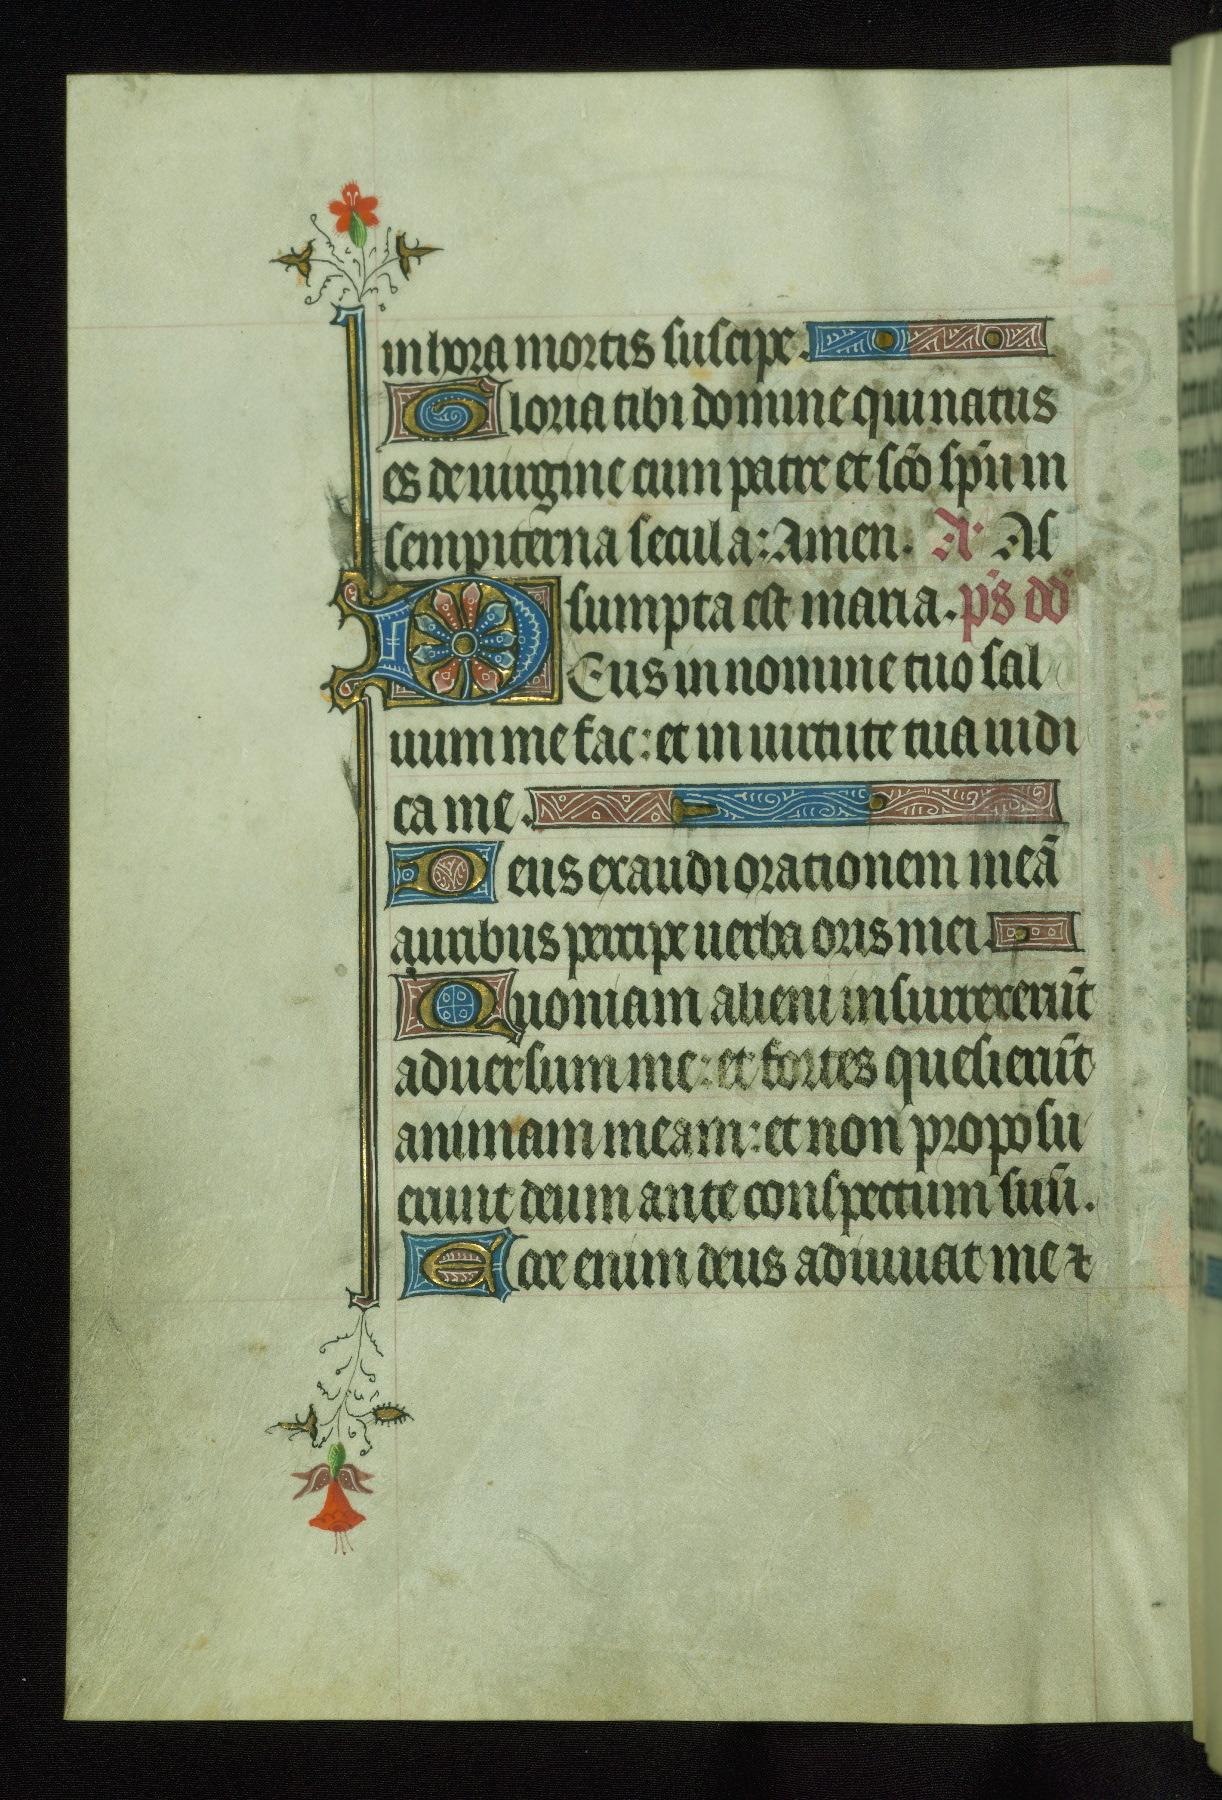 in hora mortis suscipe.
Gloria tibi domine qui natus
es de uirgine cum patre et sc̄o sp̄u in
sempiterna secula: Amen. A. As
sumpta est maria. p̄s dd̄
DEus in nomine tuo sal
uum me fac: et in uirtute tua iudi
ca me.
Deus exaudi orationem meā
auribus percipe uerba oris mei.
Quoniam alieni insurrexerūt
aduersum me: et fortes quesierūt
animam meam: et non proposu
erunt deum ante conspectum suū.
Ecce enim deus adiuuat me ⁊